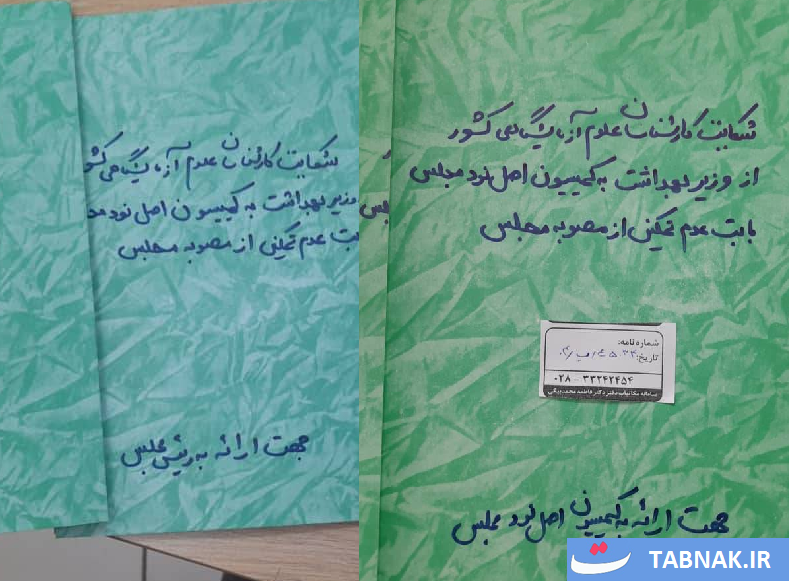 شکایت کارشناسان علوم آزمایشگاهی کشور
از وزیر بهداشت به کمیسیون اصل نود مجلس
بابت عدم تمکین از مصوبه مجلس
شماره نامه:
تاریخ:
۰۲۸ - ۳۳۲۴۲۴۵۴
جهت ارائه به کمیسیون اصل نود مجلس
شکایت کارشناسان علوم آزمایشگاهی کشو
وزیر بهداشت به کمیسیون اصل نود مج
بت عدم تمکین از مصوبه مجلس
جهت ارائه به رئیس مجلس
TABNAK.IR